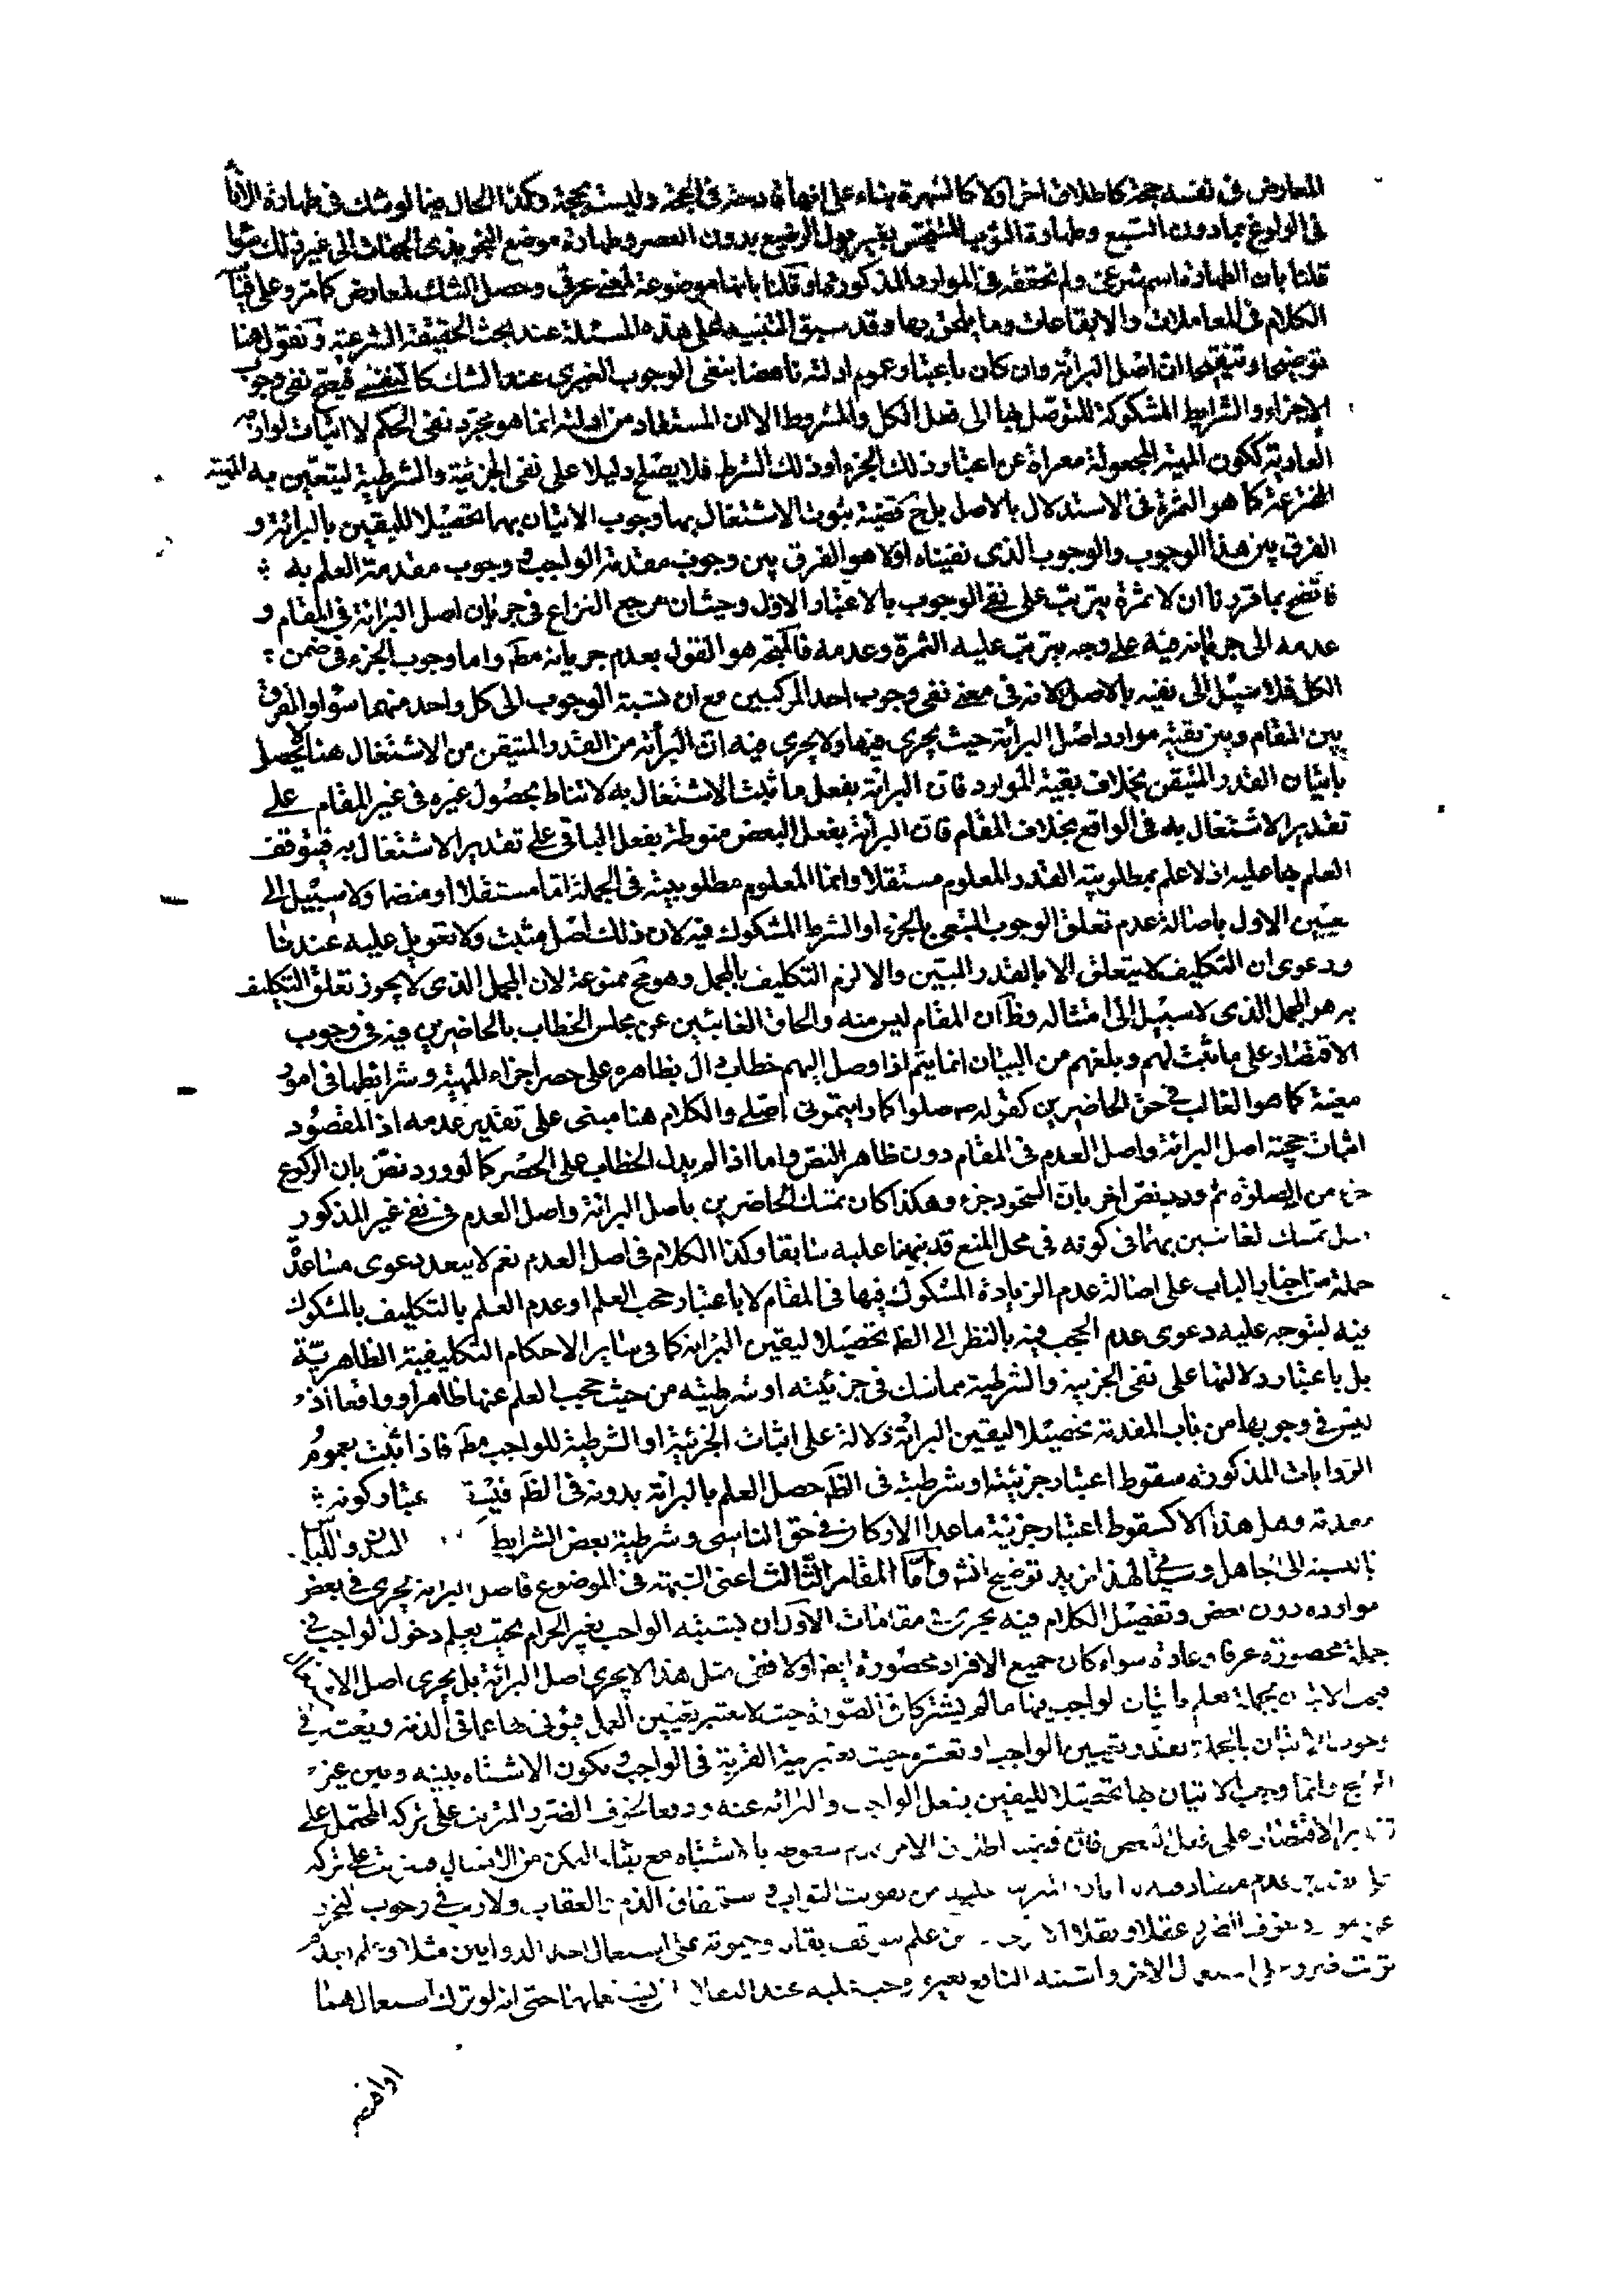 المعارض فى نفسه حجة كاطلاق اخر اولا كالشهرة بناء على انها قادحة فى الحجة وليست بحجة وكذا الحال فيما لو شك فى طهارة الاناء
فى الولوغ بما دون السبع وطهارة الثوب المتنجس بغير بول الرضيع بدون العصر وطهارة موضع النجو بذى الجهات الى غير ذلك سواء
قلنا بان الطهارة اسم شرعى ولم نحققه فى الموارد المذكورة او قلنا بانها موضوعة لمعنى عرفى وحصل الشك لمعارض كما مر وعلى قياسه
الكلام فى المعاملات والايقاعات وما يلحق بها وقد سبق التنبيه على هذه المسئلة عند بحث الحقيقة الشرعية ونقول هنا
توضيحا وتنقيحا ان اصل البرائة وان كان باعتبار عموم ادلته ناهضا بنفى الوجوب الغيرى عند الشك كالنفسى فيصح نفى وجوب
الاجزاء والشرايط المشكوكة للتوصل بها الى فعل الكل والمشروط الا ان المستفاد من ادلته انما هو مجرد نفى الحكم لا اثبات لوازمه
العادية ككون المهية المجعولة معراة عن اعتبار ذلك الجزء او ذلك الشرط فلا يصلح دليلا على نفى الجزئية والشرطية ليتعين به المهية
المخترعة كما هو الثمرة فى الاستدلال بالاصل بل ح قضية ثبوت الاشتغال بها وجوب الاتيان بهما تحصيلا لليقين بالبرائة و
الفرق بين هذا الوجوب والوجوب الذى نفيناه اولا هو الفرق بين وجوب مقدمة الواجب ووجوب مقدمة العلم به
فاتضح بما قررنا ان لا ثمرة يترتب على نفى الوجوب بالاعتبار الاول وحيث ان مرجع النزاع فى جريان اصل البرائة فى المقام و
عدمه الى جريانه فيه على وجه يترتب عليه الثمرة وعدمه فالمتجه هو القول بعدم جريانه مط واما وجوب الجزء فى ضمن
الكل فلا سبيل الى نفيه بالاصل لانه فى معنى نفى وجوب احد المركبين مع ان نسبة الوجوب الى كل واحد منهما سواء والفرق
بين المقام وبين بقية موارد اصل البرائة حيث يجرى فيها ولا يجرى فيه ان البرائة من القدر المتيقن من الاشتغال هنا لا يحصل
باتيان القدر المتيقن بخلاف بقية الموارد فان البرائة بفعل ما ثبت الاشتغال به لا تناط بحصول غيره فى غير المقام على
تقدير الاشتغال به فى الواقع بخلاف المقام فان البرائة بفعل البعض منوطة بفعل الباقى على تقدير الاشتغال به فيتوقف
العلم بها عليه اذ لا علم بمطلوبية القدر المعلوم مستقلا وانما المعلوم مطلوبيته فى الجملة اما مستقلا او منضما ولا سبيل الى
تعيين الاول باصالة عدم تعلق الوجوب التبعى بالجزء او الشرط المشكوك فيه لان ذلك اصل مثبت ولا تعويل عليه عندنا
ودعوى ان التكليف لا يتعلق الا بالقدر المبين والا لزم التكليف بالمجمل وهو مح ممنوعة لان المجمل الذى لا يجوز تعلق التكليف
به هو المجمل الذى لا سبيل الى امتثاله وظ ان المقام ليس منه والحاق الغائبين عن مجلس الخطاب بالحاضرين فيه فى وجوب
الاقتصار على ما ثبت لهم وبلغهم من البيان انما يتم اذا وصل اليهم خطاب دال بظاهره على حصر اجزاء المهية وشرائطها فى امور
معينة كما هو الغالب فى حق الحاضرين كقوله ص صلوا كما رايتمونى اصلى والكلام هنا مبنى على تقدير عدمه اذ المقصود
اثبات حجية اصل البرائة واصل العدم فى المقام دون ظاهر النص واما اذا لم يدل الخطاب على الحصر كما لو ورد نص بان الركوع
جزء من الصلوة ثم ورد نص اخر بان السجود جزء وهكذا كان تمسك الحاضرين باصل البرائة واصل العدم فى نفى غير المذكور
مثل تمسك الغائبين بهما فى كونه فى محل المنع قد نبهنا عليه سابقا وكذا الكلام فى اصل العدم نعم لا يبعد دعوى مساعدة
جملة من اخبار الباب على اصالة عدم الزيادة المشكوك فيها فى المقام لا باعتبار حجب العلم او عدم العلم بالتكليف بالمشكوك
فيه ليتوجه عليه دعوى عدم الحجب فيه بالنظر الى الظ تحصيلا ليقين البرائة كما فى سائر الاحكام التكليفية الظاهرية
بل باعتبار دلالتها على نفى الجزئية والشرطية مما شك فى جزئيته او شرطيته من حيث حجب العلم عنها ظاهرا وواقعا اذ
ليس فى وجوبها من باب المقدمة تحصيلا ليقين البرائة دلالة على اثبات الجزئية او الشرطية للواجب مط فاذا ثبت بعموم
الروايات المذكورة سقوط اعتبار جزئيته او شرطيته فى الظ حصل العلم بالبرائة بدونه فى الظ اعتبار كونه
مقدمة وهل هذا الا كسقوط اعتبار جزئية ما عدا الاركان فى حق الناسى وشرطية بعض الشرايط
بالنسبة الى الجاهل وسيأتى لهذا مزيد توضيح انش واما المقام الثالث اعنى الشبهة فى الموضوع فاصل البرائة يجرى فى بعض
موارده دون بعض وتفصيل الكلام فيه يجرى فى مقامات الاول ان يشتبه الواجب بغير الحرام بحيث يعلم دخول الواجب فى
جملة محصورة عرفا وعادة سواء كان جميع الافراد محصورة ايض اولا ففى مثل هذا لا يجرى اصل البرائة بل يجرى اصل
فيجب الاتيان بجملة يعلم باتيان الواجب بها ما لم يشتركا فى الصورة حيث لا يعتبر تعيين العمل فيؤتى بها عما فى الذمة ويعتبر فى
وجوب الاتيان بالجملة تعذر تعيين الواجب او تعسره حيث يعتبر نية القربة فى الواجب ويكون الاشتباه بينه وبين غير
الراجح وانما وجب الاتيان بها تحصيلا لليقين بفعل الواجب والبرائة عنه ودفعا لخوف الضرر المترتب على تركه المحتمل على
تقدير الاقتصار على فعل البعض فان قضية اطلاق الامر عدم سقوطه بالاشتباه مع بقاء التمكن من الامتثال فيترتب على تركه
على تقدير عدم من تفويت الثواب و استحقاق الذم والعقاب ولا ريب فى وجوب التحرز
عن خوف الضرر عقلا ونقلا الا ترى ان من علم بتوقف بقاء وحيوته على استعمال احد الدوايين مثلا وعلم
ترتب ضرر على استعمال الاخر واشتبه النافع بغيره وجب عليه عند العقلاء حتى انه لو ترك استعمالهما